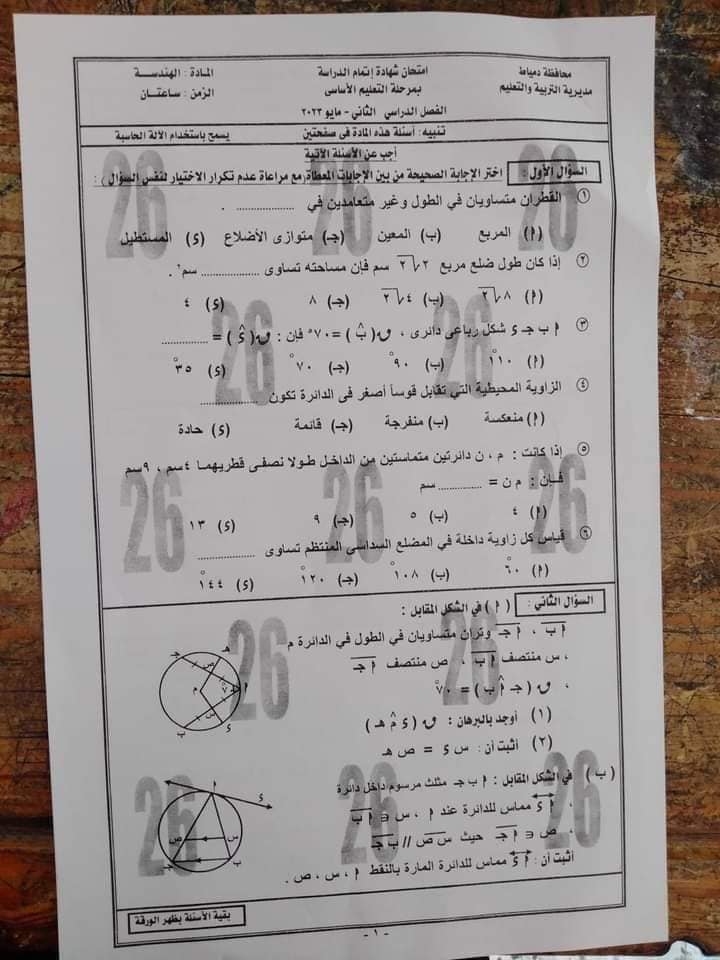 محافظة دمياط
مديرية التربية والتعليم
امتحان شهادة إتمام الدراسة
بمرحلة التعليم الأساسى
الفصل الدراسي الثاني - مايو ٢٠٢٣
المادة : الهندسة
الزمن : ساعتان
تنبيه: أسئلة هذه المادة فى صفحتين
يسمح باستخدام الآلة الحاسبة
أجب عن الأسئلة الآتية
السؤال الأول : اختر الإجابة الصحيحة من بين الإجابات المعطاة(مع مراعاة عدم تكرار الاختيار لنفس السؤال) :
١ القطران متساويان في الطول وغير متعامدين في .............. .
(أ) المربع (ب) المعين (جـ) متوازى الأضلاع (ى) المستطيل
٢ إذا كان طول ضلع مربع ٢√٢ سم فإن مساحته تساوى .............. سم٢ .
(أ) ٨√٢ (ب) ٤√٢ (جـ) ٨ (ى) ٤
٣ أ ب جـ ى شكل رباعى دائرى ، ق(ب̂) = ٧٠° فإن : ق(ى̂) = ..............
(أ) ١١٠° (ب) ٩٠° (جـ) ٧٠° (ى) ٣٥°
٤ الزاوية المحيطية التي تقابل قوساً أصغر فى الدائرة تكون ..............
(أ) منعكسة (ب) منفرجة (جـ) قائمة (ى) حادة
٥ إذا كانت : م ، ن دائرتين متماستين من الداخل طولا نصفى قطريهما ٤سم ، ٩سم
فإن : م ن = .............. سم
(أ) ٤ (ب) ٥ (جـ) ٩ (ى) ١٣
٦ قياس كل زاوية داخلة في المضلع السداسى المنتظم تساوى ..............
(أ) ٦٠° (ب) ١٠٨° (جـ) ١٢٠° (ى) ١٤٤°
السؤال الثانى : (أ) في الشكل المقابل :
أ ب ، أ جـ وتران متساويان في الطول في الدائرة م
، س منتصف أ ب ، ص منتصف أ جـ
، ق(جـ أ̂ ب) = ٧٠°
(١) أوجد بالبرهان : ق(ى م̂ هـ)
(٢) أثبت أن : س ى = ص هـ
جـ
هـ
ص
م
٧٠°
أ
س
ى
ب
(ب) في الشكل المقابل : أ ب جـ مثلث مرسوم داخل دائرة
، أ ى مماس للدائرة عند أ ، س ∈ أ ب
، ص ∈ أ جـ حيث س ص // ب جـ
أثبت أن : أ ى مماس للدائرة المارة بالنقط أ ، س ، ص .
أ
ى
ص
س
جـ
ب
بقية الأسئلة بظهر الورقة
- ١ -
26
26
26
26
26
26
26
26
26
26
26
26
26